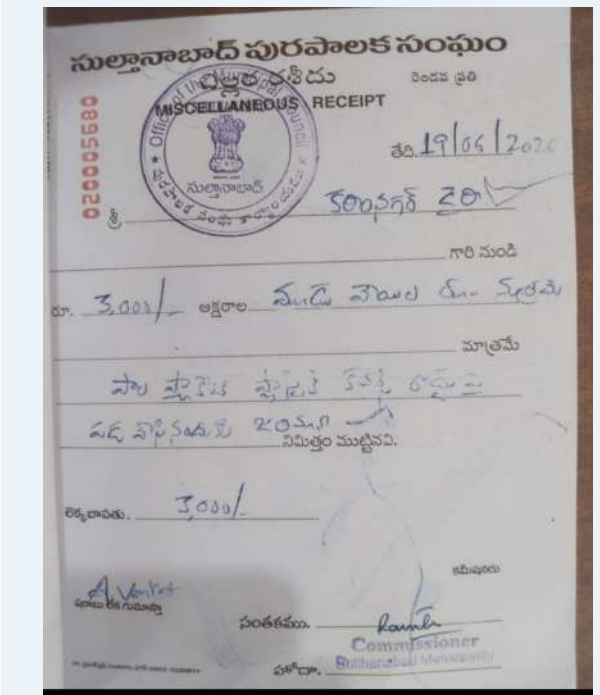 సుల్తానాబాద్ పురపాలక సంఘం
చిల్లర రశీదు
రెండవ ప్రతి
MISCELLANEOUS RECEIPT
Office of the Municipal Council
సుల్తానాబాద్
02005680
తేది. 19/06/2020
శ్రీ కరీంనగర్ డైరీ
గారి నుండి
రూ. 3,000/- అక్షరాల మూడు వేయిల రూ
మాత్రమే
పాల ప్యాకెట్ ప్లాస్టిక్ కవర్స్ రోడ్డు పై
పడ వేసినందుకు జరిమానా
నిమిత్తం ముట్టినవి.
లెక్కబాపతు. 3,000/-
కమీషనరు
A. Venkat
షరాబు లేక గుమాస్తా
సంతకము.
Commissioner
హోదా. Sulthanabad Municipality